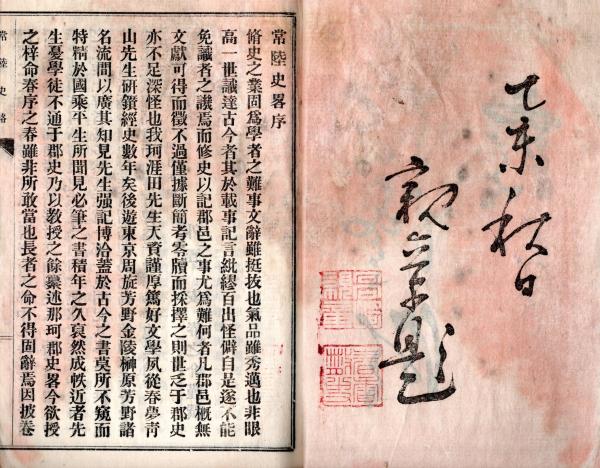 乙未秋日
親章題
常陸史畧序
脩史之業固爲學者之難事文辭雖挺抜也氣品雖秀邁也非眼
高一世識達古今者其於載事記言紕繆百出怪僻自是遂不能
免識者之譏焉而修史以記郡邑之事尤爲難何者凡郡邑概無
文獻可得而徵不過僅據斷簡者零牘而採擇之則世乏于郡史
亦不足深怪也我珂涯田先生天資謹厚篤好文學夙從春夢靑
山先生研鑽經史數年矣後遊東京周旋芳野金陵榊原芳野諸
名流間以廣其知見先生强記博洽蓋於古今之書莫所不窺而
特精於國乘平生所聞見必筆之書積年之久裒然成帙近者先
生憂學徒不通于郡史乃以敎授之餘纂述那珂郡史畧今欲授
之梓命春序之春雖非所敢當也長者之命不得固辭焉因披卷
常陸史略